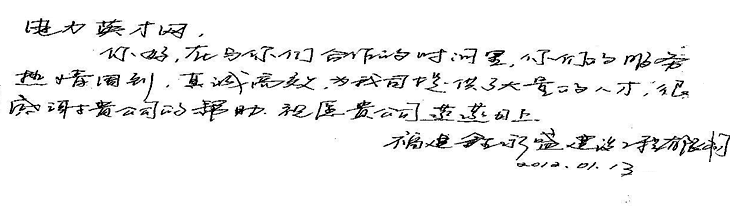 电力英才网,
你好,在与你们合作的时间里,你们的服务
热情周到,真诚高效,为我司提供了大量的人才,很
感谢于贵公司的帮助.祝愿贵公司蒸蒸日上
福建鑫永盛建设工程有限公司
2012.01.13